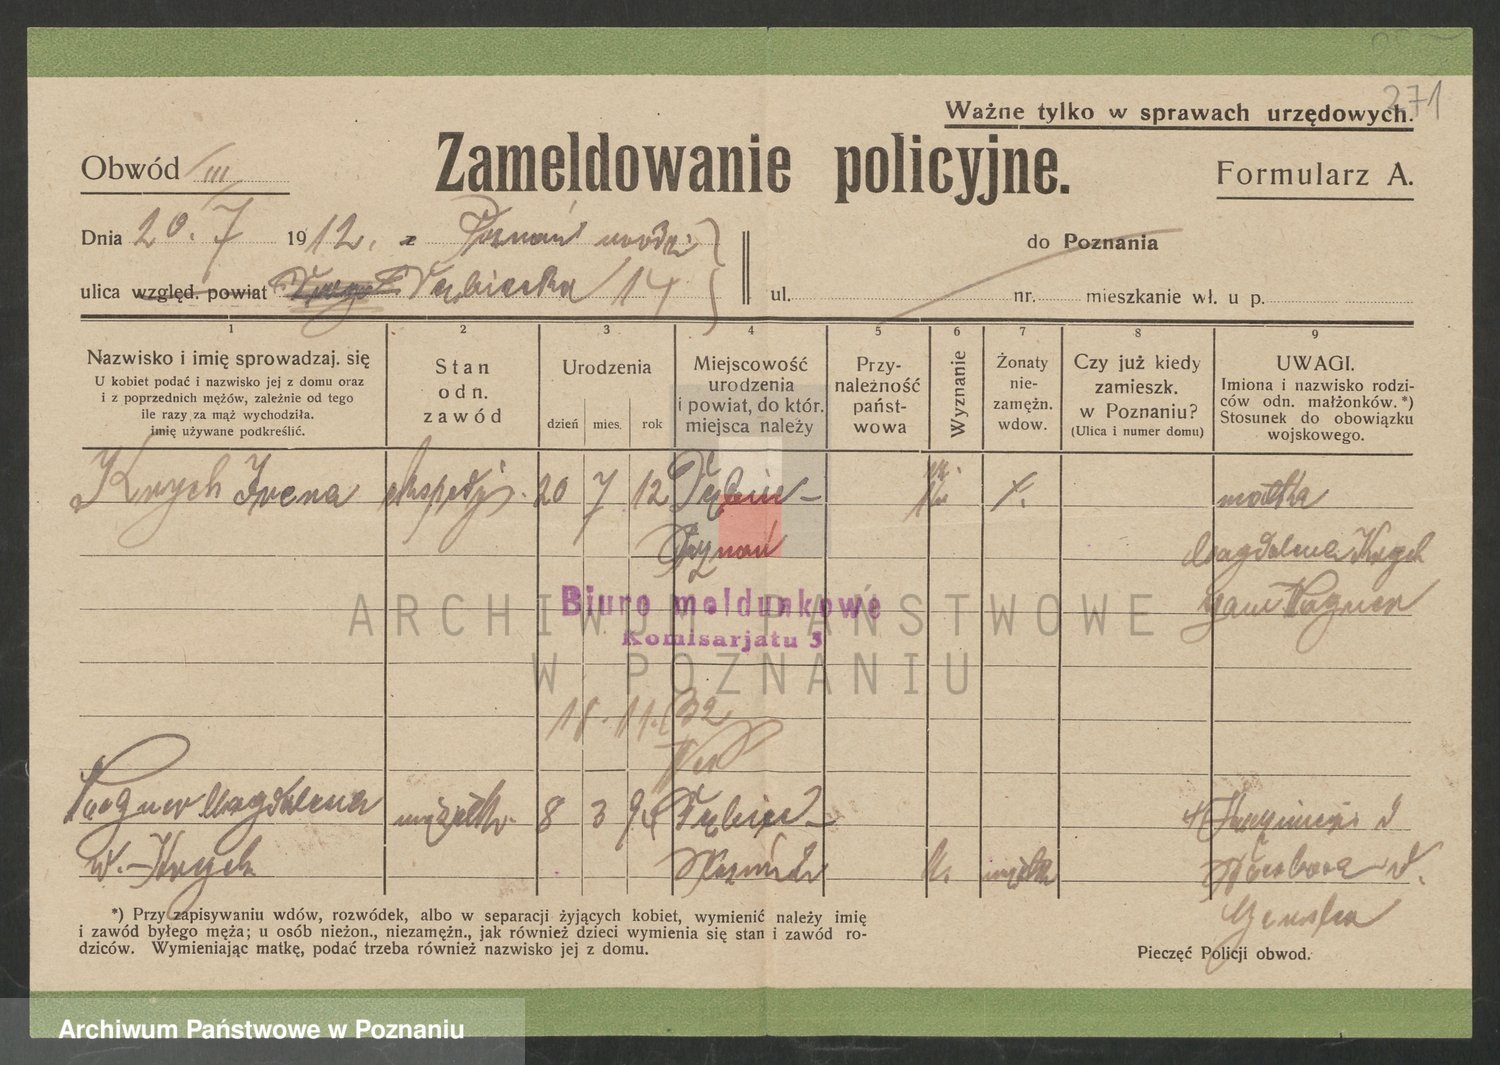 271
Ważne tylko w sprawach urzędowych.
Obwód III
Zameldowanie policyjne.
Formularz A.
Dnia 20. 7 1912. z Poznań
do Poznania
ulica względ. powiat 14
ul. nr. mieszkanie wł. u p.
1 2 3 4 5 6 7 8 9
Nazwisko i imię sprowadzaj. się
U kobiet podać i nazwisko jej z domu oraz
i z poprzednich mężów, zależnie od tego
ile razy za mąż wychodziła.
imię używane podkreślić.
Stan
odn.
zawód
Urodzenia
dzień mies. rok
Miejscowość
urodzenia
i powiat, do któr.
miejsca należy
Przy-
należność
państ-
wowa
Wyznanie
Żonaty
nie-
zamężn.
wdow.
Czy już kiedy
zamieszk.
w Poznaniu?
(Ulica i numer domu)
UWAGI.
Imiona i nazwisko rodzi-
ców odn. małżonków.*)
Stosunek do obowiązku
wojskowego.
Krych Irena 20 7 12 matka
Poznań Magdalena Krych
Biuro meldunkowe
Komisarjatu 3
ARCHIWUM PAŃSTWOWE
W POZNANIU
18. 11. 32
Wagner Magdalena 8 3
Krych
*) Przy zapisywaniu wdów, rozwódek, albo w separacji żyjących kobiet, wymienić należy imię
i zawód byłego męża; u osób nieżon., niezamężn., jak również dzieci wymienia się stan i zawód ro-
dziców. Wymieniając matkę, podać trzeba również nazwisko jej z domu.
Pieczęć Policji obwod.
Archiwum Państwowe w Poznaniu